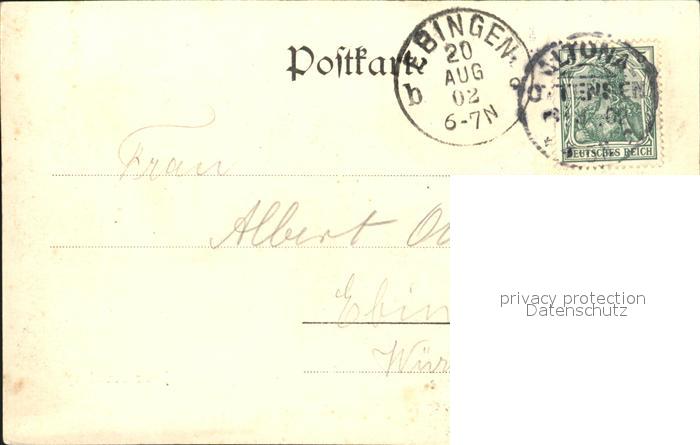 Postkarte
EBINGEN
20
AUG
02
6-7N
b
ALTONA
OTTENSEN
DEUTSCHES REICH
Frau
Albert
Ebin
Wür
privacy protection
Datenschutz